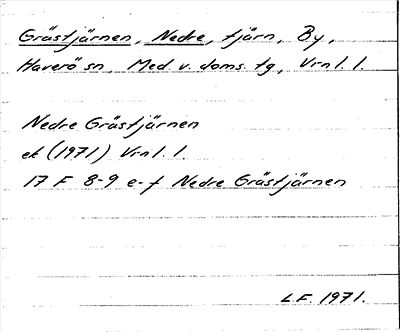 Grästjärnen, Nedre, tjärn, By,
Haverö sn, Med. v. doms. tg, Vrnl. l.
Nedre Grästjärnen
ek (1971) Vrnl. l.
17 F 8-9 e-f Nedre Grästjärnen
L.F. 1971.